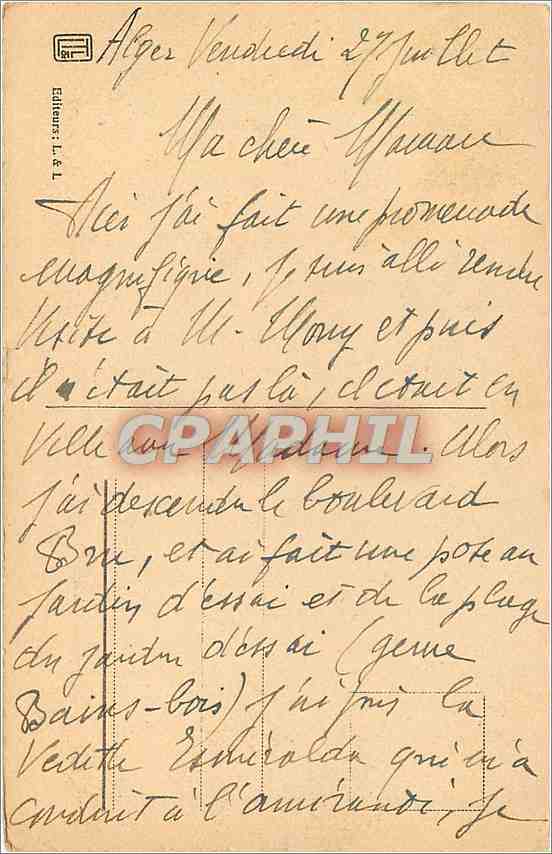 Alger Vendredi 27 Juillet
Editeurs: L. & L
Ma chère Maman
Hier j'ai fait une promenade
magnifique, je suis allé rendre
visite à M. Mony et puis
il n'était pas là, il était en
ville avec Madame. Alors
CPAPHIL
j'ai descendu le boulevard
Bru, et ai fait une pose au
Jardin d'essai et de la plage
du jardin d'essai (genre
Bains-bois) j'ai pris la
Vedette Esméralda qui m'a
conduit à l'amirauté, je